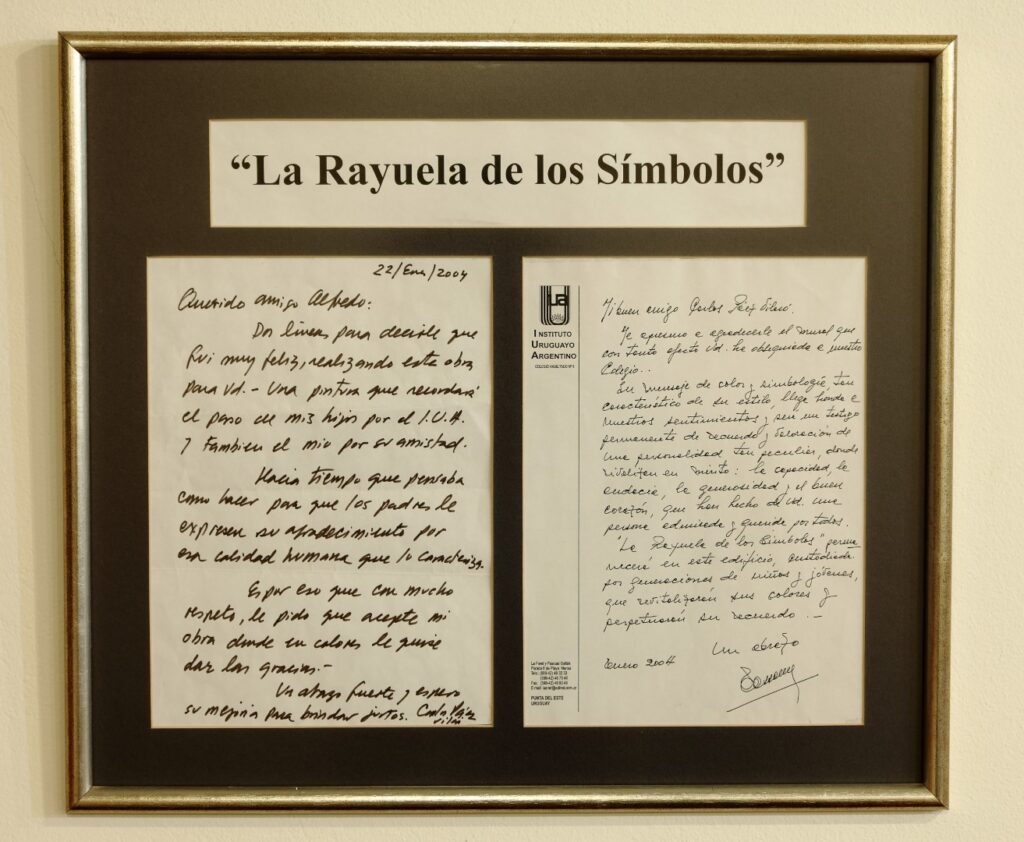 “La Rayuela de los Símbolos”
22/Ene/2004
Querido amigo Alfredo:
Dos líneas para decirle que
fui muy feliz, realizando esta obra
para Vd.- Una pintura que recordará
el paso de mis hijos por el I.U.A.
y tambien el mio por su amistad.
Hacia tiempo que pensaba
como hacer para que los padres le
expresen su agradecimiento por
esa calidad humana que lo caracteriza.
Es por eso que con mucho
respeto, le pido que acepte mi
obra donde en colores le quise
dar las gracias.-
Un abrazo fuerte y espero
su mejoria para brindar juntos. Carlos Páez
Vilaró
iua
INSTITUTO
URUGUAYO
ARGENTINO
COLEGIO HABILITADO Nº
Mi buen amigo Carlos Páez Vilaró.
Me apresuro a agradecerle el mural que
con tanto afecto Vd. ha obsequiado a nuestro
Colegio..
Su mensaje de color y simbología, tan
característico de su estilo llega hondo a
nuestros sentimientos y será un testigo
permanente de recuerdo y valoración de
una personalidad tan peculiar, donde
rivalizan en mérito: la capacidad, la
audacia, la generosidad y el buen
corazón, que han hecho de Vd. una
persona admirada y querida por todos.
"La Rayuela de los Símbolos" perma
necerá en este edificio, custodiada
por generaciones de niños y jóvenes,
que revitalizarán sus colores y
perpetuarán su recuerdo. -
Un abrazo
Enero 2004
Parada 5 de Playa Mansa
PUNTA DEL ESTE
URUGUAY